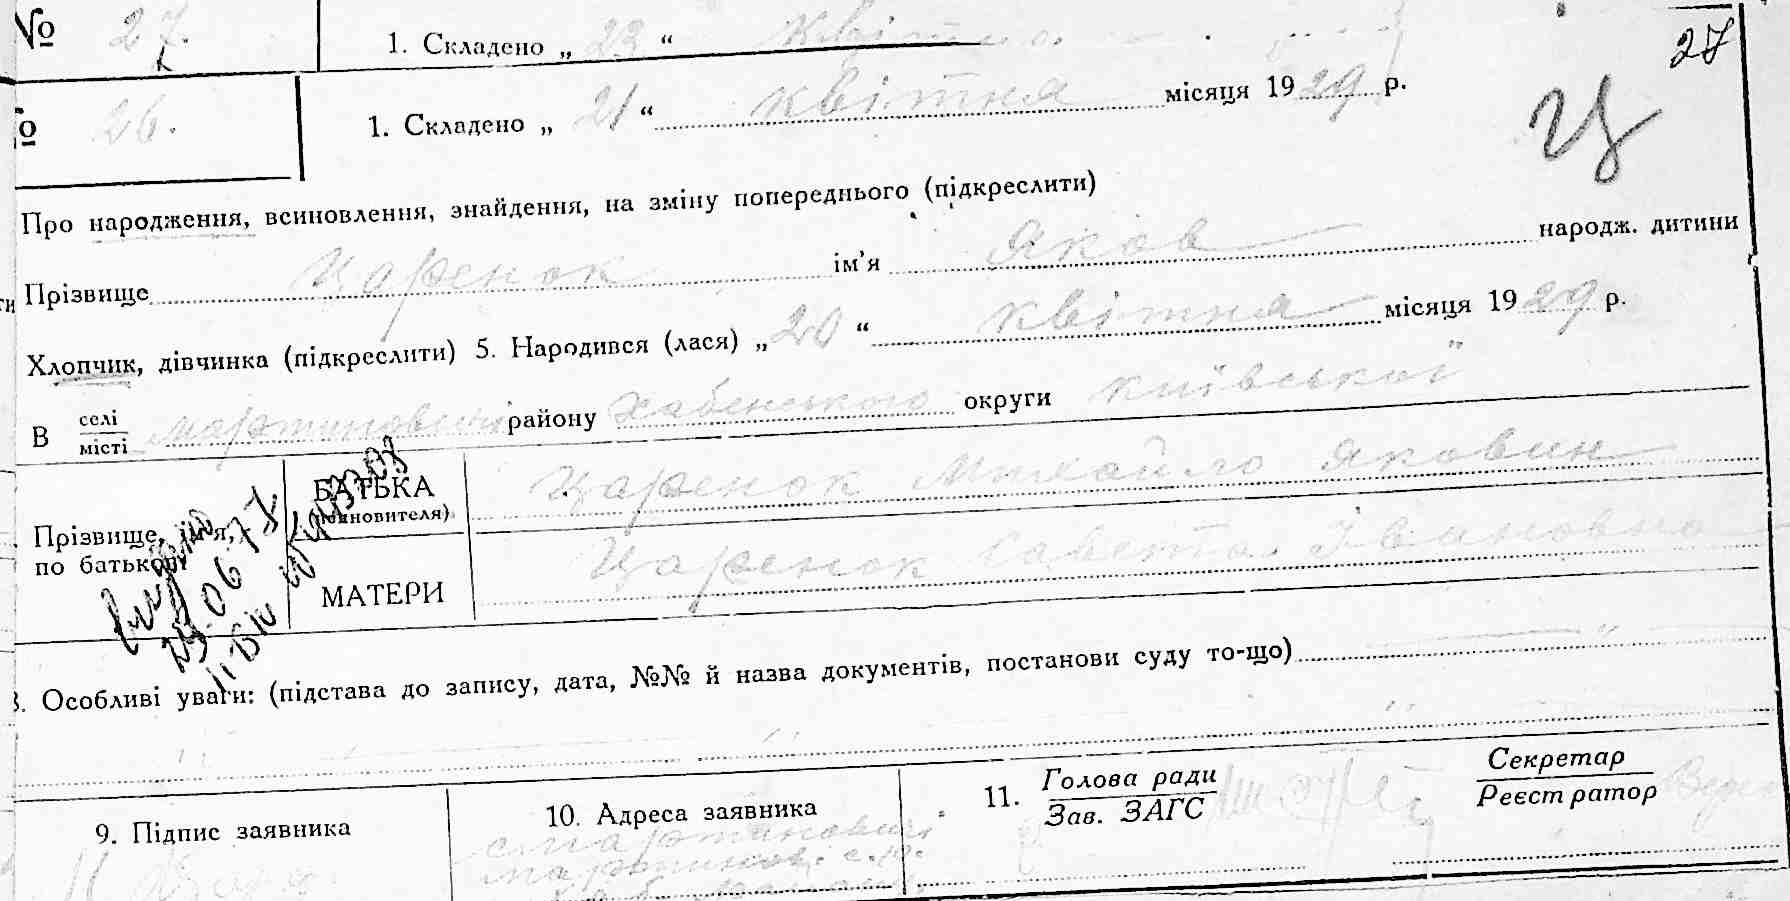 № 27. 1. Складено „ 23 “ квітня
27
№ 26. 1. Складено „ 21 “ квітня місяця 1929 р.
Ц
Про народження, всиновлення, знайдення, на зміну попереднього (підкреслити)
Прізвище Царенок ім’я Яков народж. дитини
Хлопчик, дівчинка (підкреслити) 5. Народився (лася) „ 20 “ квітня місяця 1929 р.
В селі/місті Мартиновичі району Хабенського округи київської
Прізвище, ім’я, по батькові
БАТЬКА (всиновителя) Царенок Михайло Яковин
МАТЕРИ Царенок Івановна
29.06.77
8. Особливі уваги: (підстава до запису, дата, №№ й назва документів, постанови суду то-що)
9. Підпис заявника
10. Адреса заявника
с Мартинович.
Мартинов. с.р.
11. Голова ради
Зав. ЗАГС
Секретар
Реєстратор